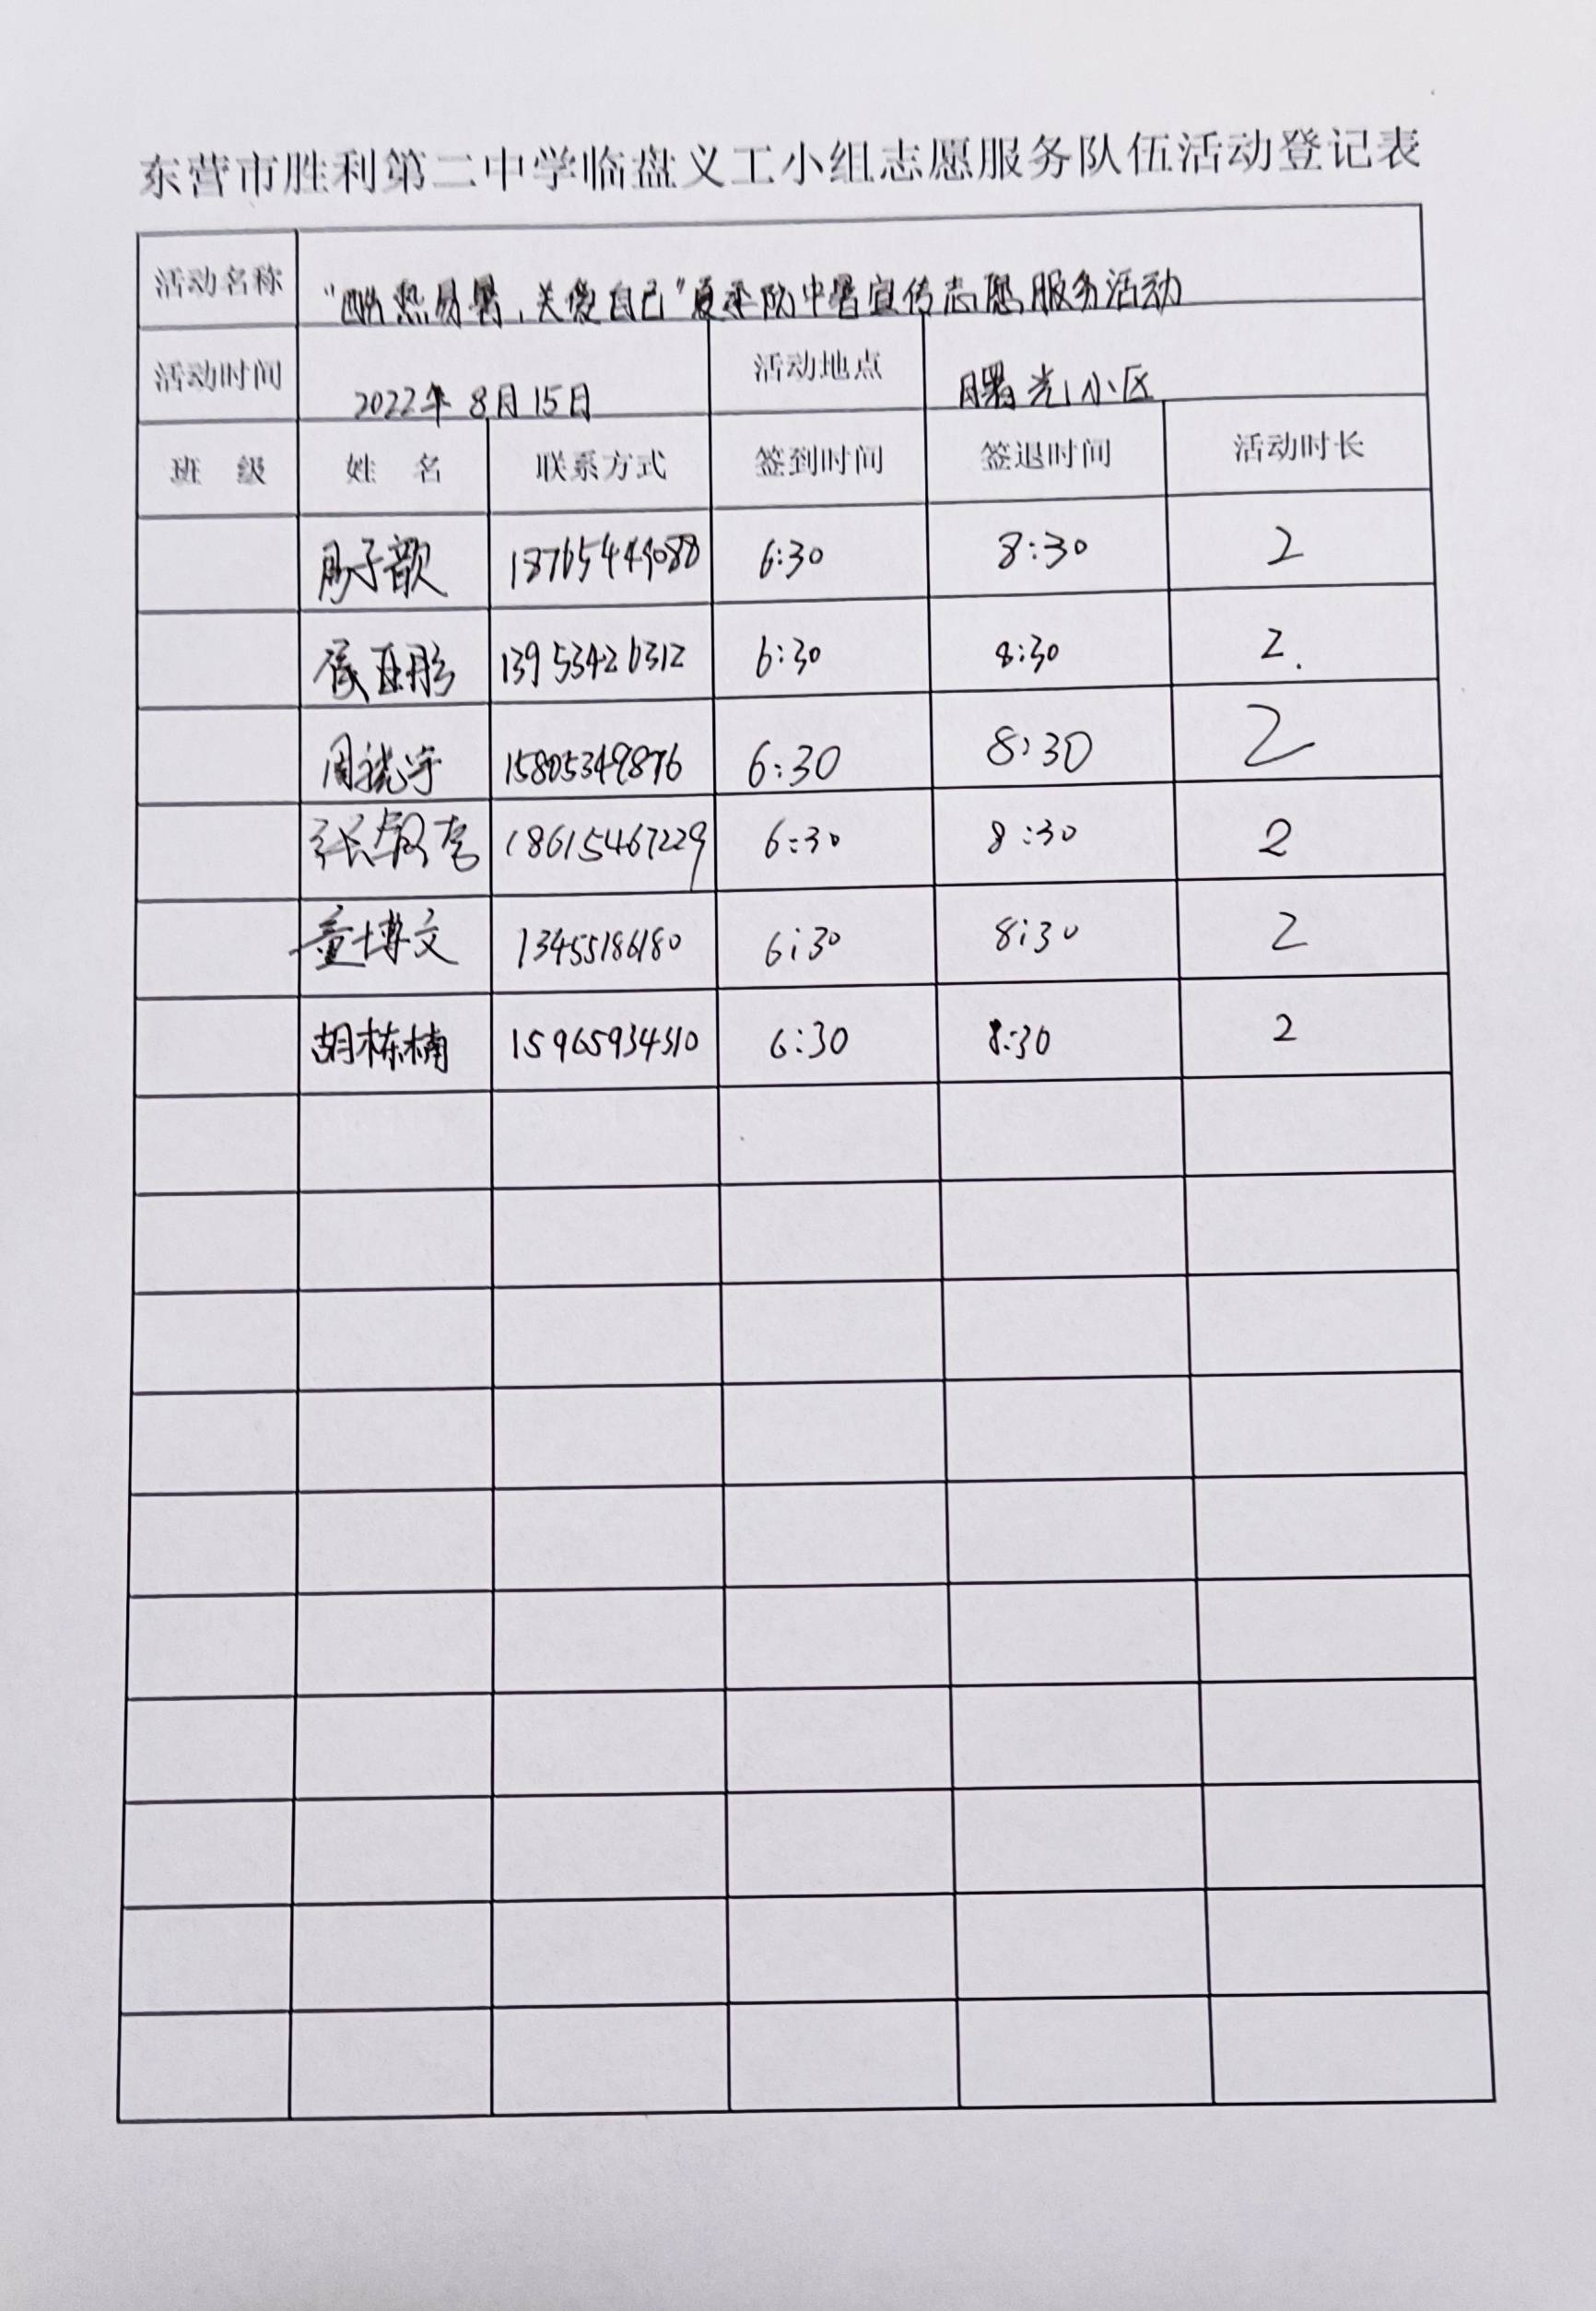 东营市胜利第二中学临盘义工小组志愿服务队伍活动登记表
活动名称 "酷热易暑,关爱自己"夏季防中暑宣传志愿服务活动
活动时间 2022年8月15日 活动地点 曙光小区
班 级 姓 名 联系方式 签到时间 签退时间 活动时长
子歆 18765449088 6:30 8:30 2
13953426312 6:30 8:30 2.
周 宇 15805349876 6:30 8:30 2
张 18615467229 6:30 8:30 2
董博文 13455186180 6:30 8:30 2
胡栋楠 15965934310 6:30 8:30 2